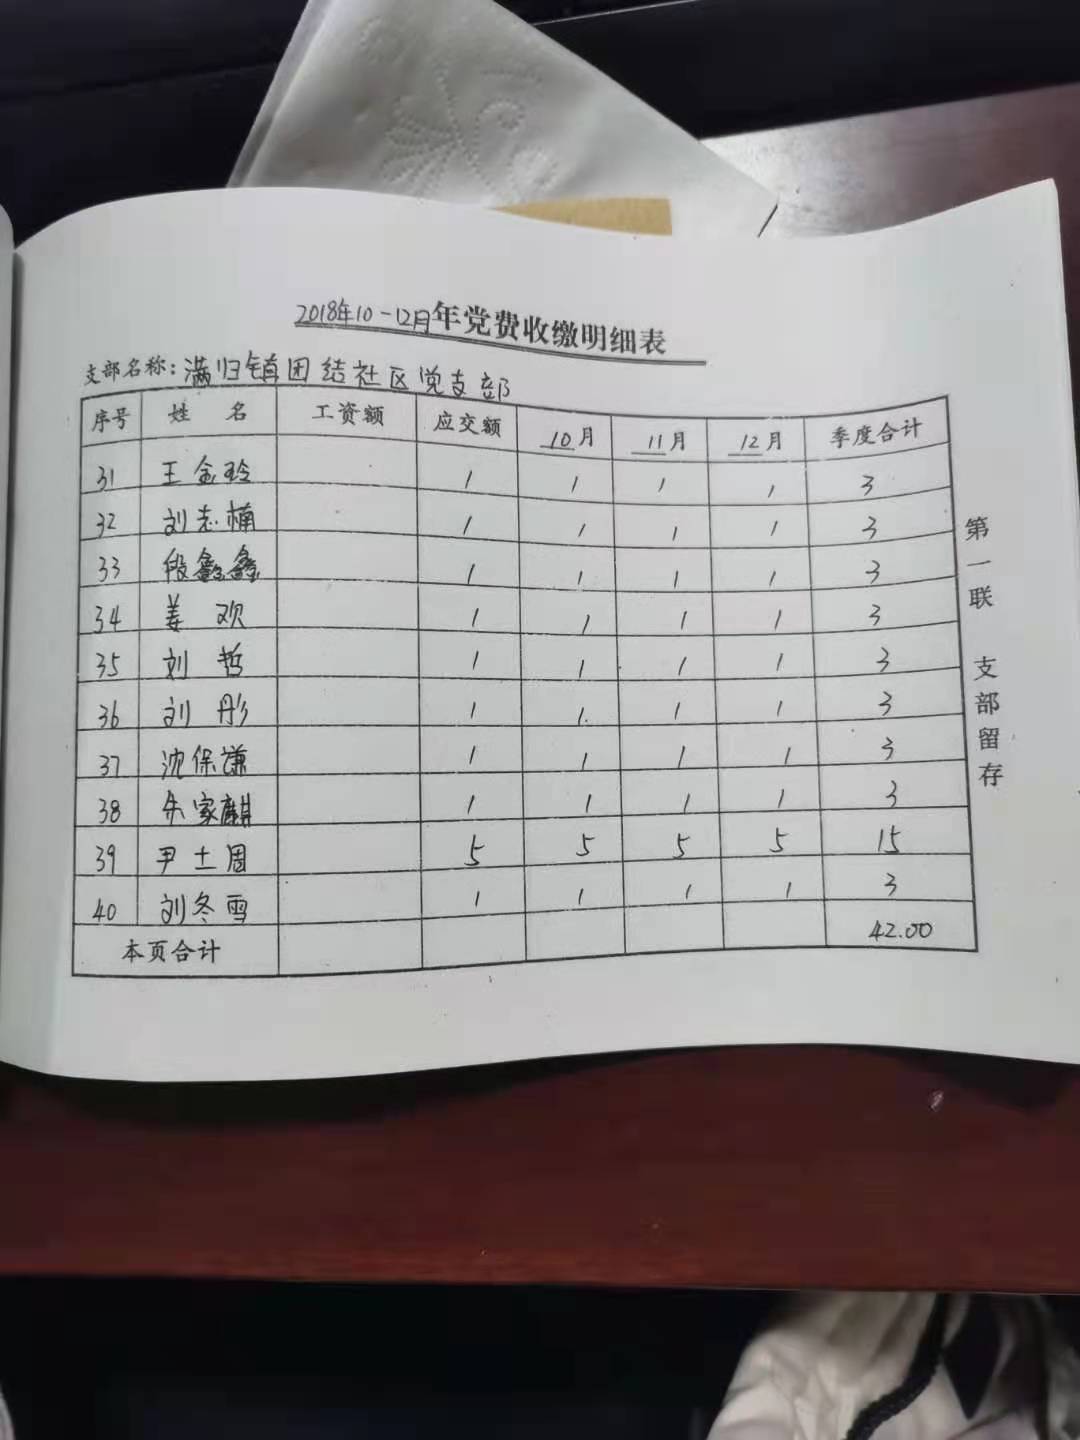 2018年10-12月年党费收缴明细表
支部名称：满归镇团结社区党支部
序号 姓名 工资额 应交额 10月 11月 12月 季度合计
31 王金玲 1 1 1 1 3
32 刘志楠 1 1 1 1 3
33 段鑫鑫 1 1 1 1 3
34 姜欢 1 1 1 1 3
35 刘哲 1 1 1 1 3
36 刘彤 1 1 1 1 3
37 沈保谦 1 1 1 1 3
38 朱家麒 1 1 1 1 3
39 尹士国 5 5 5 5 15
40 刘冬雪 1 1 1 1 3
本页合计 42.00
第一联 支部留存